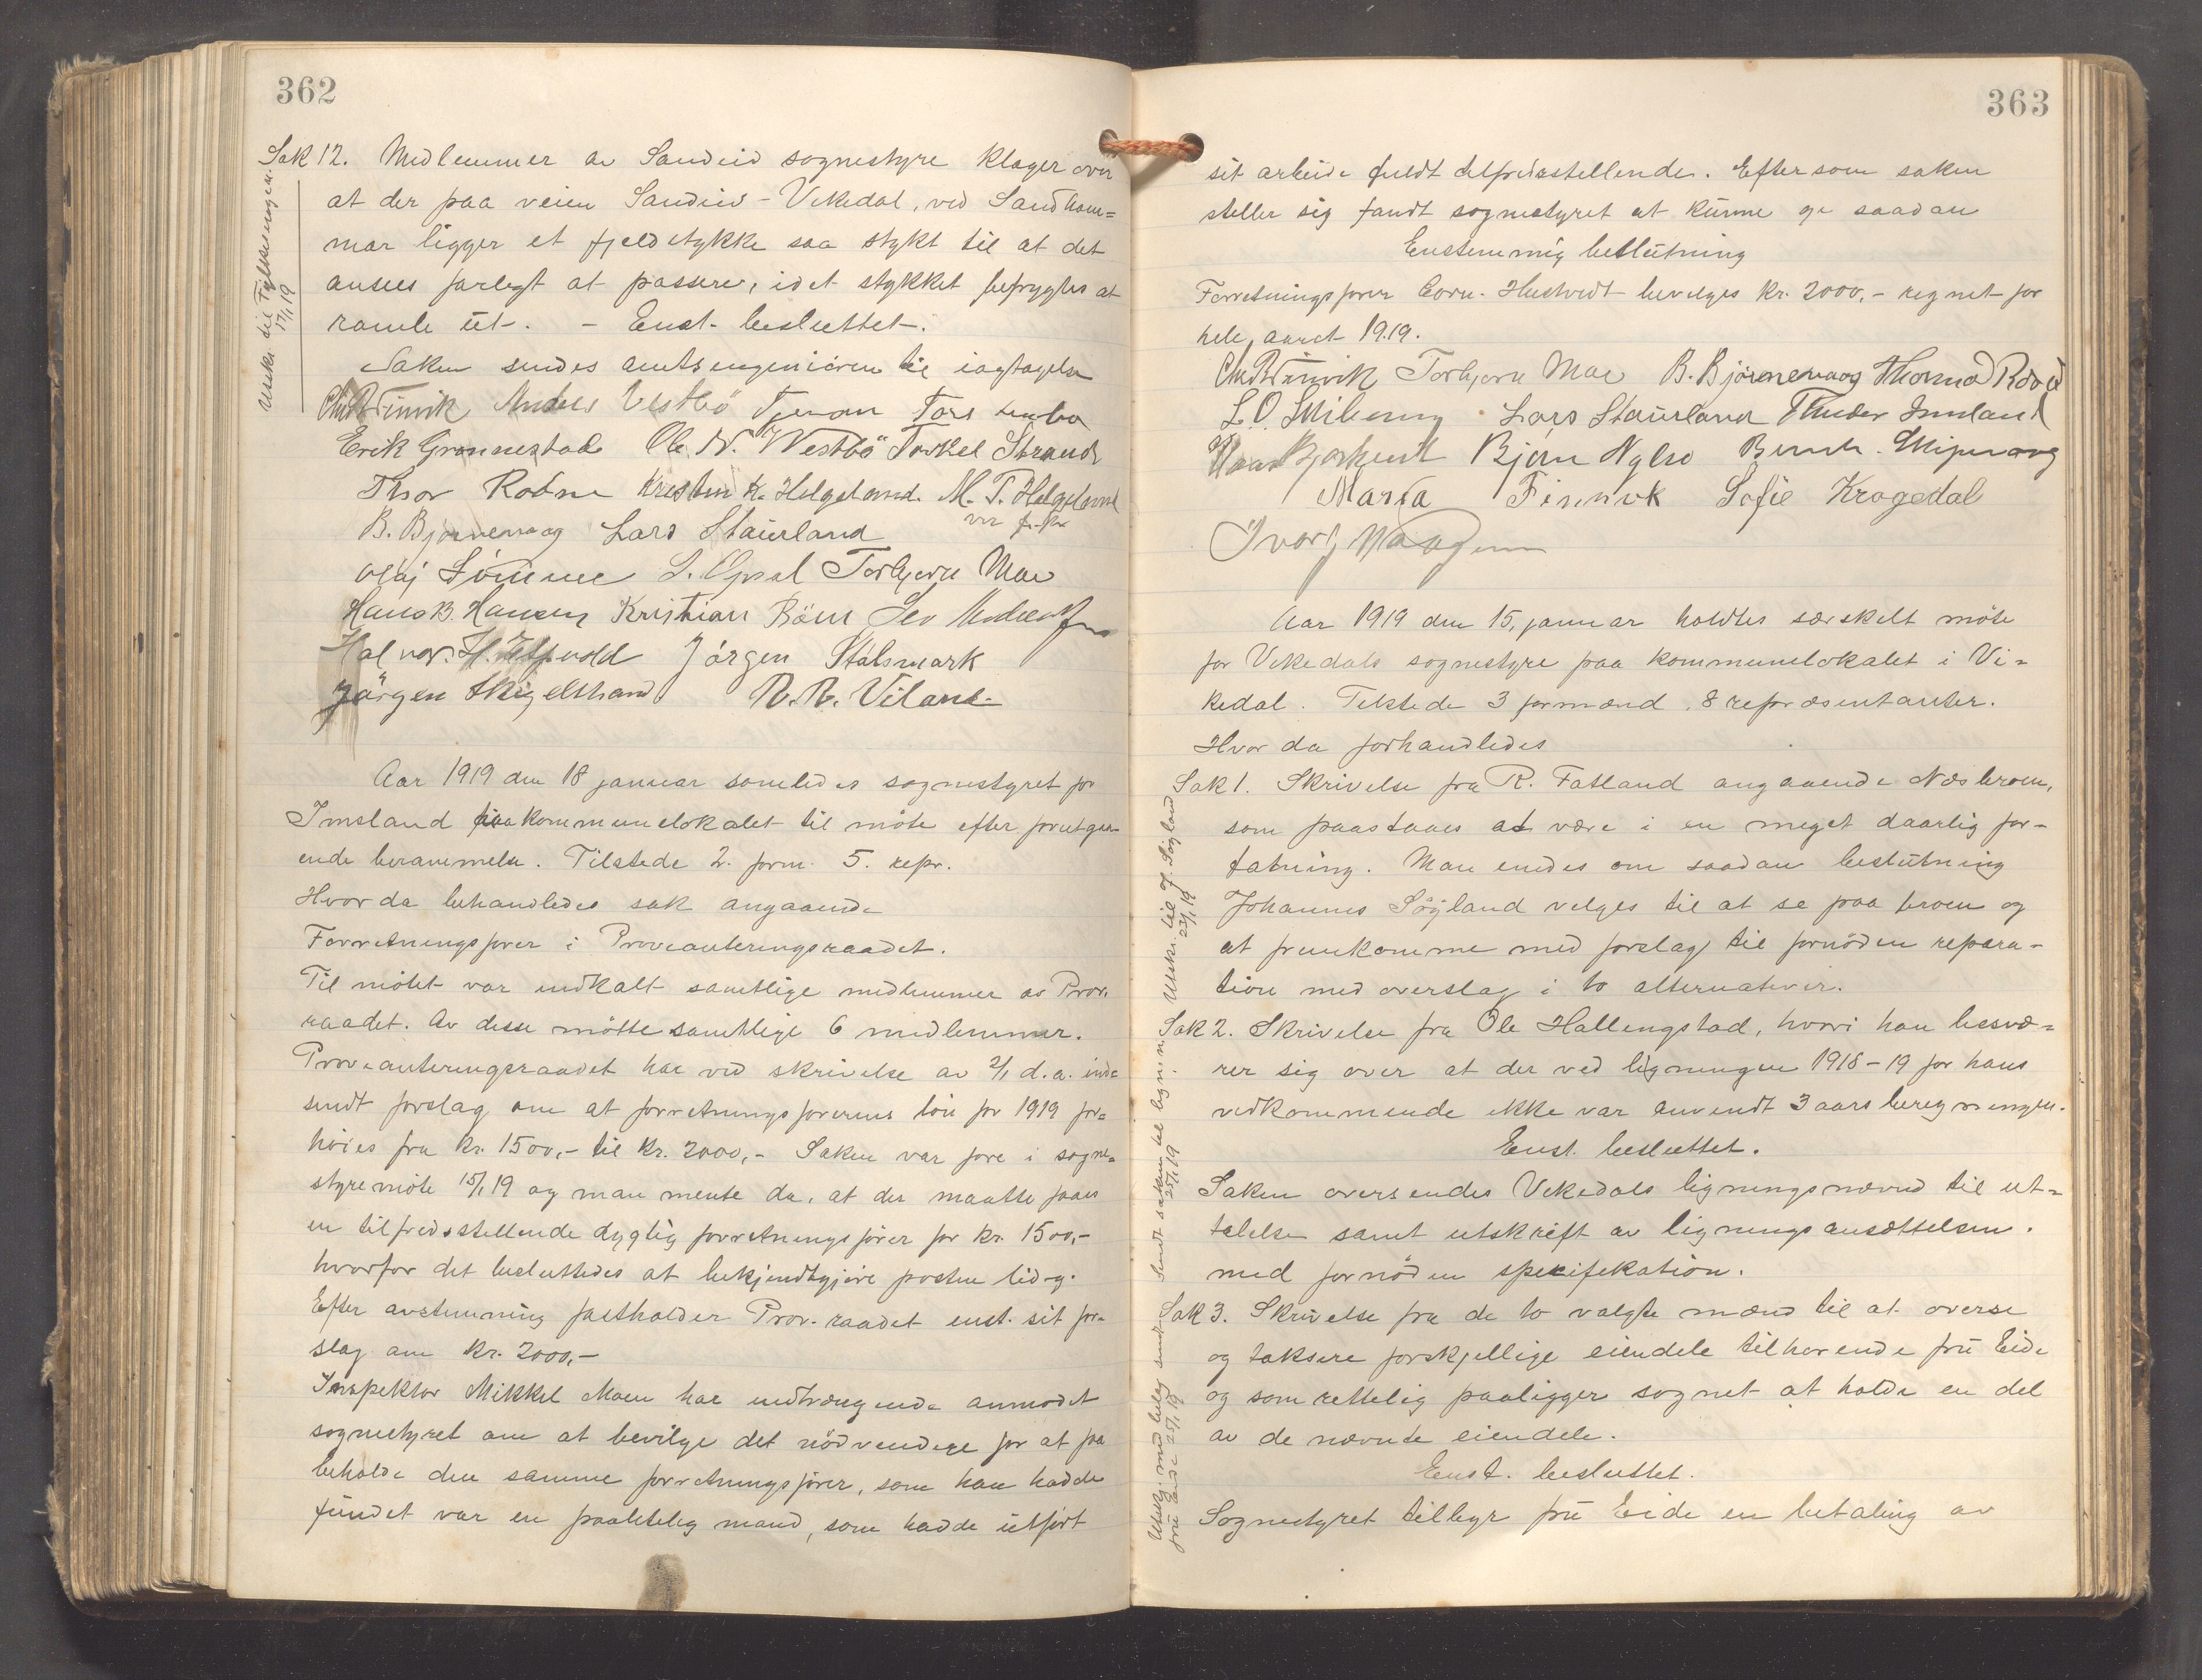 362
Sak 12. Medlemmer av Sandeid sognestyre klager over
at der paa veien Sandeid - Vikedal, ved Sandham=
mar ligger et fjeldstykke saa stykt til at det
ansees farlegt at passere, idet stykket befrygtes at
ramle ut. - Enst. besluttet.
Saken sendes amtsingeniøren til iagtagelse
Utskr. til Fylkesingen.
17/1 19
Chr B Finvik Anders Vestbö Tjeran Fors
Erik Grønnestad Ole N. Westbö Torkel Strand
Thor Rodne Kristen K. Helgeland. M. T. Helgeland
B. Bjørnevaag Lars Staurland
Olaj Sömme L. Opsal Torbjørn Moe
Hans B. Hansen Kristian Böen
Halvor. H. Jörgen Stålsmark
Jörgen Skigelstrand R. R. Viland
Aar 1919 den 18 januar samledes sognestyret for
Imsland paa kommunelokalet til møte efter forutgaa-
ende berammelse. Tilstede 2. form. 5. repr.
Hvor da behandledes sak angaaende
Forretningsfører i Provianteringsraadet.
Til møtet var indkalt samtlige medlemmer av Prov.
raadet. Av disse møtte samtlige 6 medlemmer.
Provianteringsraadet har ved skrivelse av 2/1 d.a. ind=
sendt forslag om at forretningsførerens løn for 1919 for=
høies fra kr. 1500,- til kr. 2000,- Saken var fore i sogne=
styremöte 15/1 19 og man mente da, at der maatte faaes
en tilfredsstellende dygtig forretningsfører for kr. 1500,-
hvorfor det besluttedes at bekjendtgjøre posten ledig.
Efter avstemning fastholder Prov. raadet enst. sit for-
slag om kr. 2000,-
Inspektør Mikkel Moen har indtrængende anmodet
sognestyret om at bevilge det nødvendige for at faa
beholde den samme forretningsfører, som han hadde
fundet var en paalitelig mand, som hadde utført
363
sit arbeide fuldt tilfredsstellende. Eftersom saken
steller sig fandt sognestyret at kunne gi saadan
Enstemmig beslutning
Forretningsfører Corn. Hustvedt bevilges kr. 2000,- regnet for
hele aaret 1919.
Chr B Finvik Torbjørn Moe B. Bjørnevaag Thomas Rødd
L. O. Lars Staurland Imsland
Hans Bjørn Nylso Bernh.
Marta Finnvik Sofie Kragedal
Ivar
Aar 1919 den 15. januar holdtes særskilt møte
for Vikedals sognestyre paa kommunelokalet i Vi=
kedal. Tilstede 3 formænd, 8 repræsentanter.
Hvor da forhandledes
Sak 1. Skrivelse fra R. Fatland angaaende Næsbroen,
som paastaaes at være i en meget daarlig for-
fatning. Man enedes om saadan beslutning
Johannes Söyland velges til at se paa broen og
at fremkomme med forslag til fornöden repara-
tion med overslag i to alternativer.
Utskr. til J. Söyland
23/1 19
Sak 2. Skrivelse fra Ole Hallengstad, hvori han besvæ=
rer sig over at der ved ligningen 1918-19 for hans
vedkommende ikke var anvendt 3 aars beregningen.
Enst. besluttet.
Saken oversendes Vikedals ligningsnævnd til ut=
talelse samt utskrift av ligningsansættelsen.
med fornöden spesifikation.
Sendt saken til lign.n.
25/1 19
Sak 3. Skrivelse fra de to valgte mænd til at overse
og taksere forskjellige eiendele tilhørende frü Eide
og som rettelig paaligger sognet at holde en del
av de nævnte eiendele.
Enst. besluttet.
Sognestyret tilbyr frü Eide en betaling av
Utskr. med bilag sendt
frü Eide 25/1 19